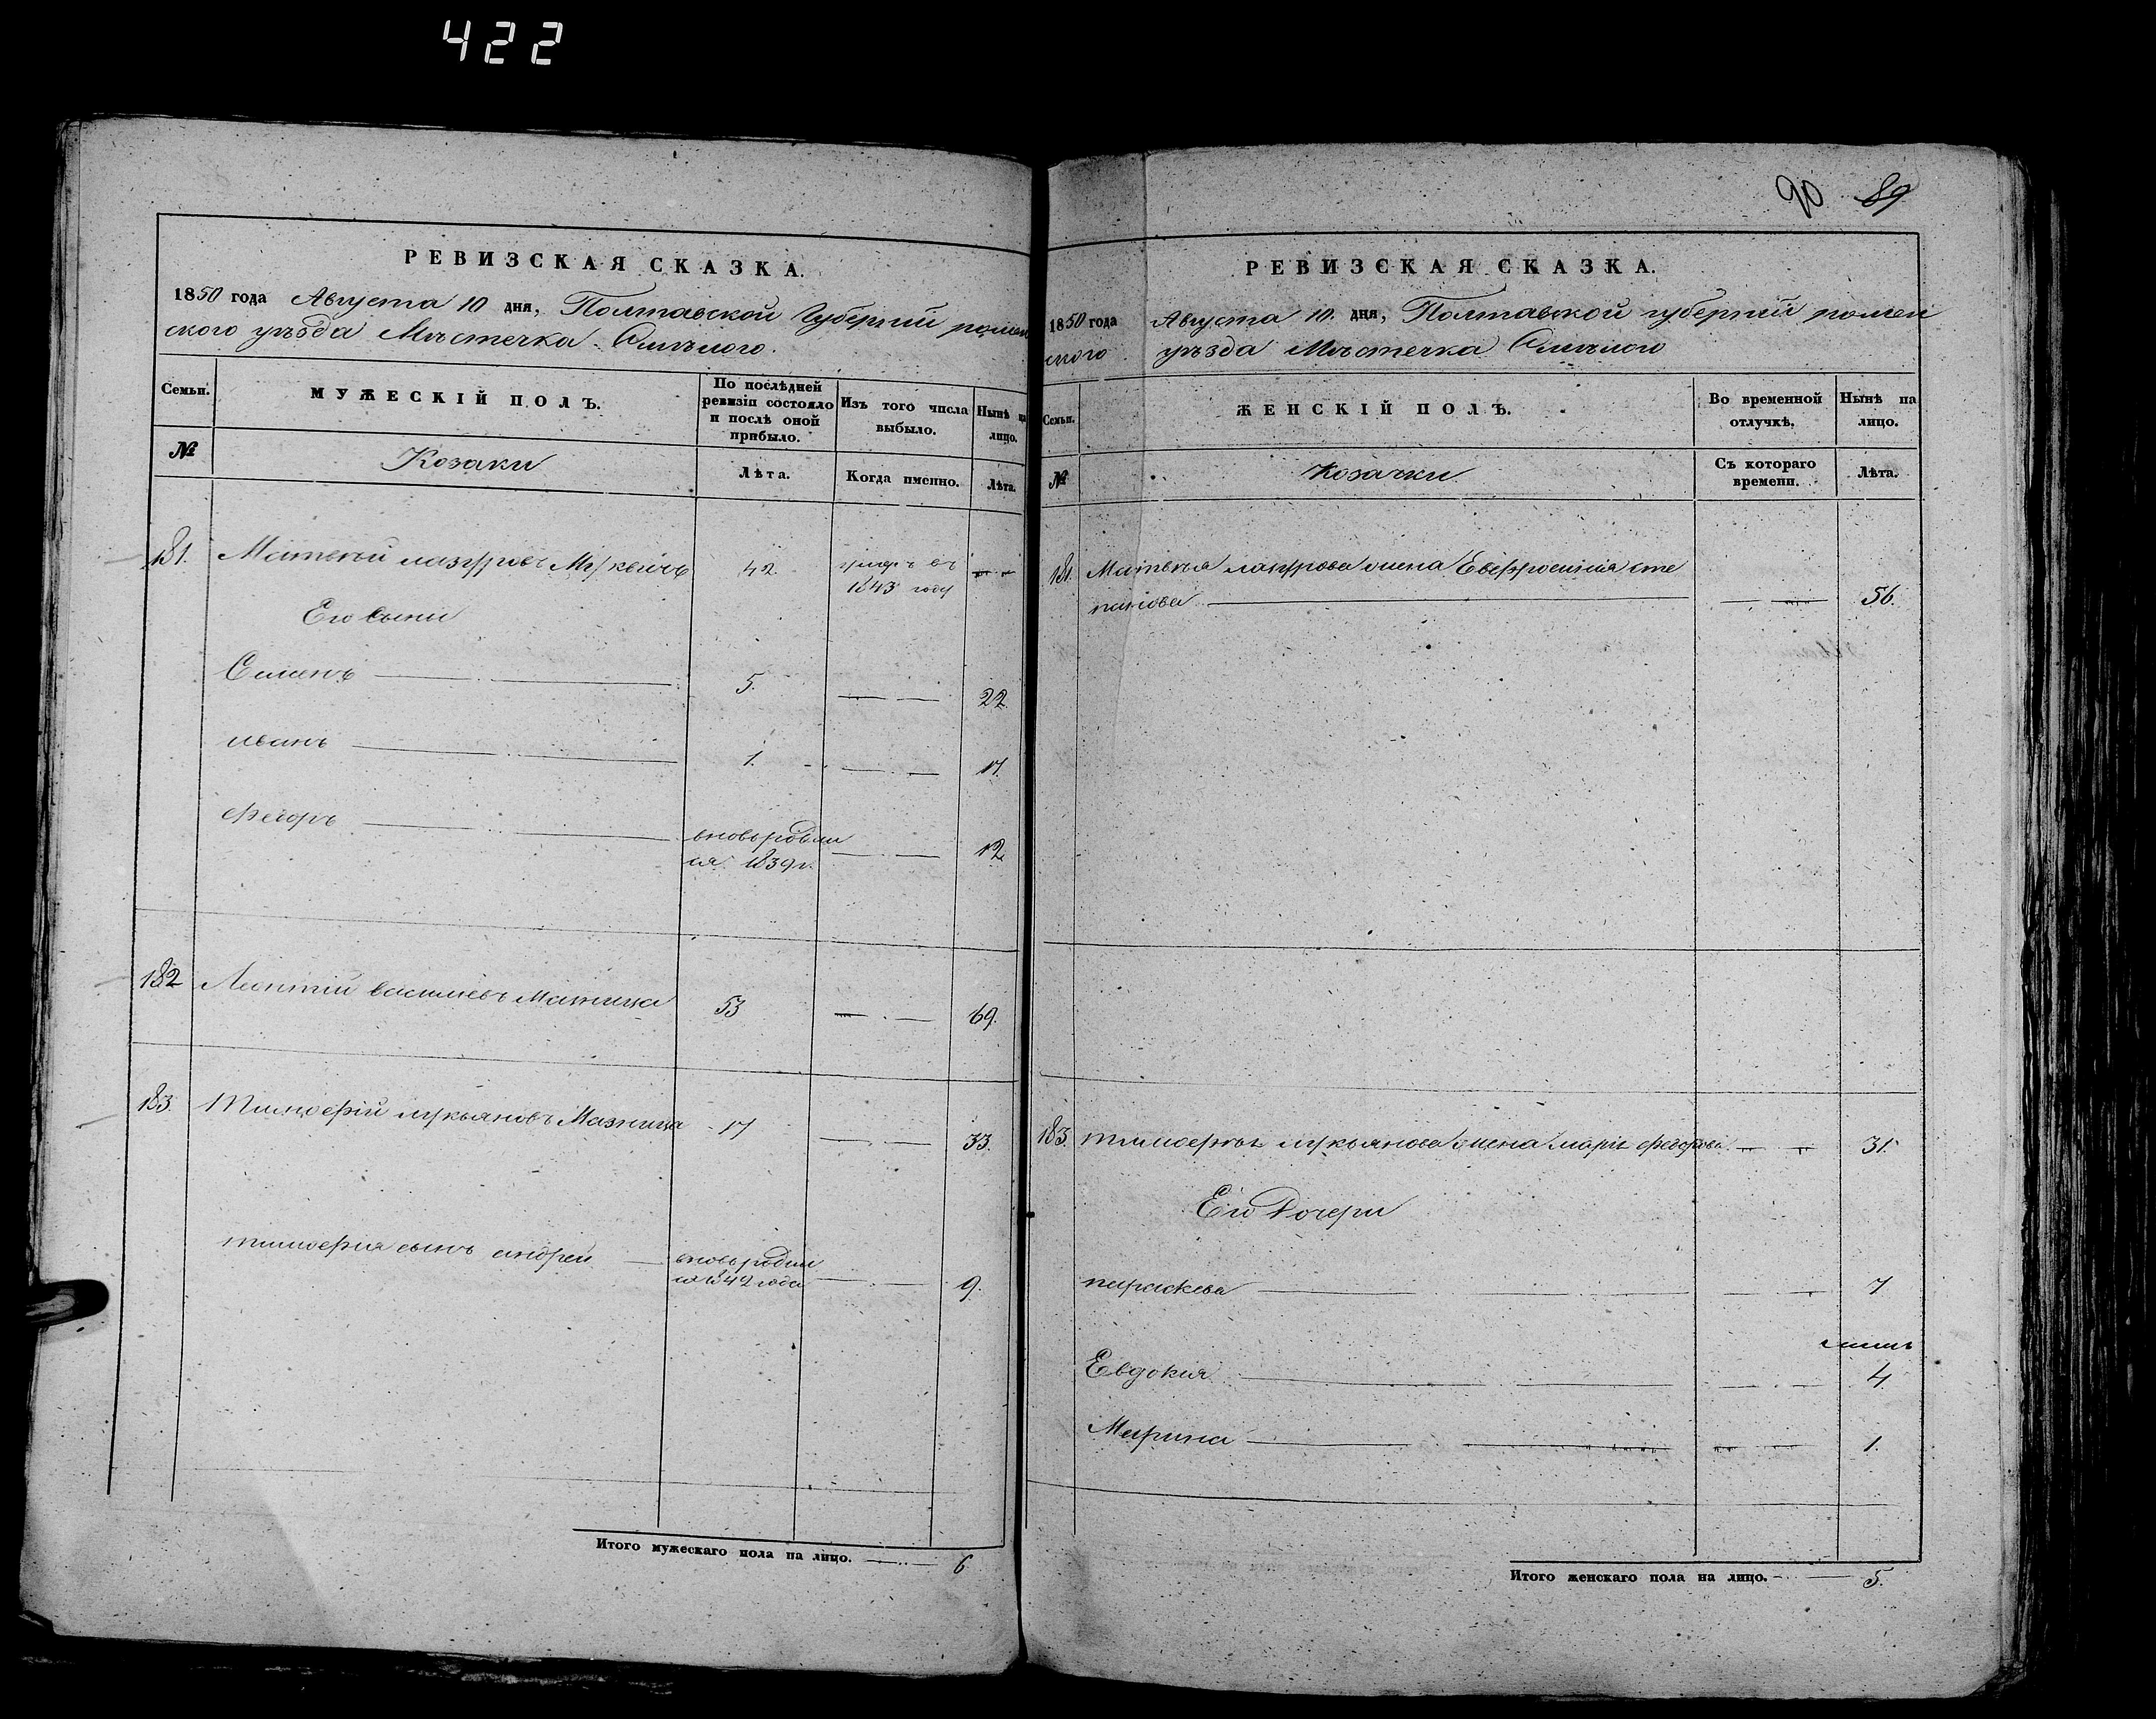 422
РЕВИЗСКАЯ СКАЗКА.
1850 года Августа 10 дня, Полтавской Губерніи ромен
ского уѣзда Мѣстечка Смѣлого.
Семьи.
МУЖЕСКІЙ ПОЛЪ.
По послѣдней ревизіи состояло и послѣ оной прибыло.
Изъ того числа выбыло.
Нынѣ на лицо.
№
Козаки
Лѣта.
Когда именно.
Лѣта.
181. Матвей лазуровъ 42. умеръ въ
1843 году
Его Сыни
Семенъ 5. 22.
иванъ 1. 17.
Федоръ вновьродил
ся 1839 г. 12.
182 Леонтій васильевъ Мазница 53 69.
183. Тимофей лукьяновъ Мазница 17 33.
тимофея сынъ андрей вновьродил
ся 1842 года 9.
Итого мужескаго пола на лицо. 6
90 89
РЕВИЗСКАЯ СКАЗКА.
1850 года Августа 10. дня, Полтавской губерніи ромен
ского уѣзда Мѣстечка Смѣлого
Семьи.
ЖЕНСКІЙ ПОЛЪ.
Во временной отлучкѣ.
Нынѣ на лицо.
№
Козачки
Съ котораго времени.
Лѣта.
181. Матвея лазурова жена Евфросинія сте
панова 56.
183. тимофея лукьянова жена марія Федорова 31.
Его Дочери
параскева 7
Евдокия 4.
Марина 1.
Итого женскаго пола на лицо. 5.